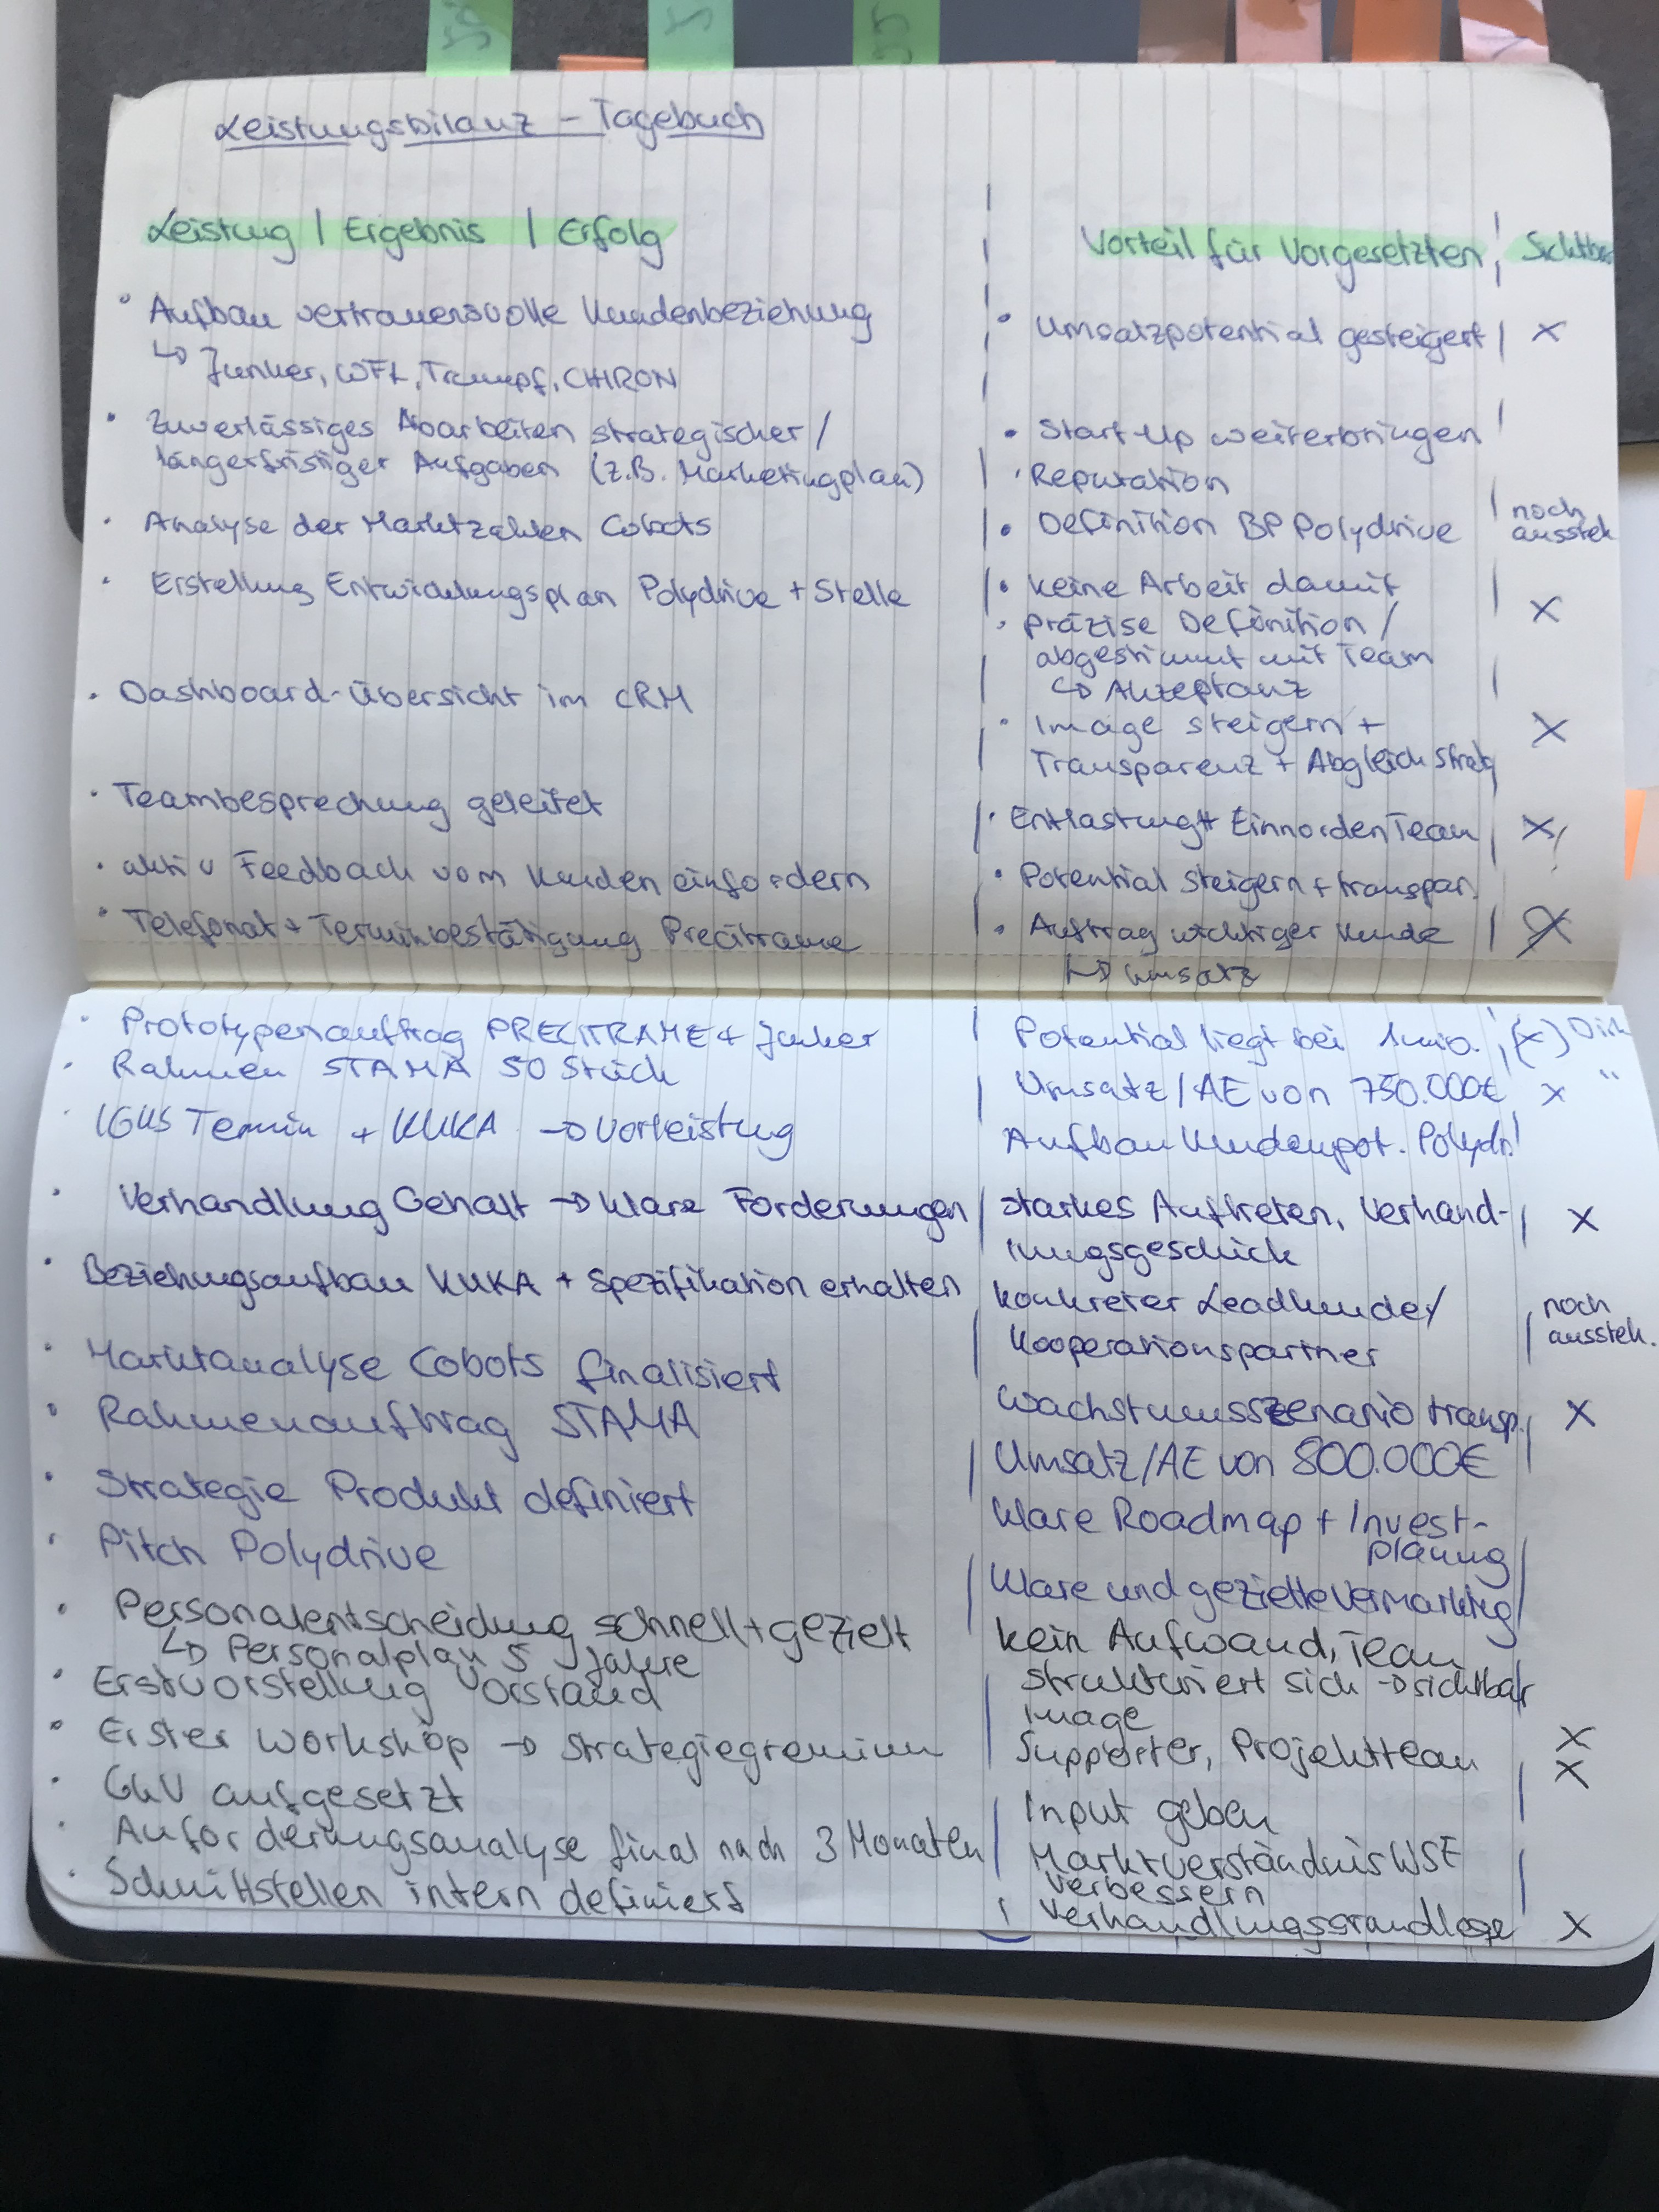 Leistungsbilanz - Tagebuch
Leistung | Ergebnis | Erfolg
Vorteil für Vorgesetzten
· Aufbau vertrauensvolle Kundenbeziehung
· Umsatzpotential gesteigert | x
↳ Junker, WFL, Trumpf, CHIRON
· Zuverlässiges Abarbeiten strategischer /
· Start-Up weiterbringen
längerfristiger Aufgaben (z.B. Marketingplan)
· Reputation
· Analyse der Marktzahlen Cobots
· Definition BP Polydrive
noch
aussteh
· Erstellung Entwicklungsplan Polydrive + Stelle
· keine Arbeit damit
· präzise Definition / x
abgestimmt mit Team
↳ Akzeptanz
· Dashboard-Übersicht im CRM
· Image steigern + x
Transparenz + Abgleich Strateg
· Teambesprechung geleitet
· Entlastung + Einnorden Team | x
· aktiv Feedback vom Kunden einfordern
· Potential steigern + transpar.
· Telefonat + Terminbestätigung Precitrame
· Auftrag wichtiger Kunde | x
↳ Umsatz
· Prototypenauftrag PRECITRAME + Junker
Potential liegt bei 1 mio. (x) Dirk
· Rahmen STAMA 50 Stück
Umsatz/AE von 750.000€ x "
· IGUS Termin + KUKA → Vorleistung
Aufbau Kundenpot. Polydr
· Verhandlung Gehalt → klare Forderungen
starkes Auftreten, Verhand- | x
lungsgeschick
· Beziehungsaufbau KUKA + Spezifikation erhalten
konkreter Leadkunde/
noch
Kooperationspartner
aussteh.
· Marktanalyse Cobots finalisiert
Wachstumsszenario transp. x
· Rahmenauftrag STAMA
Umsatz/AE von 800.000€
· Strategie Produkt definiert
klare Roadmap + Invest-
planung
· Pitch Polydrive
klare und gezielte Vermarktng
· Personalentscheidung schnell + gezielt
kein Aufwand, Team
↳ Personalplan 5 Jahre
strukturiert sich → sichtbar
· Erstvorstellung Vorstand
Image x
· Erster Workshop → Strategiegremium
Supporter, Projektteam x
· GKV aufgesetzt
Input geben
· Anforderungsanalyse final nach 3 Monaten
Marktverständnis WSF
verbessern
· Schnittstellen intern definiert
Verhandlungsgrundlage x